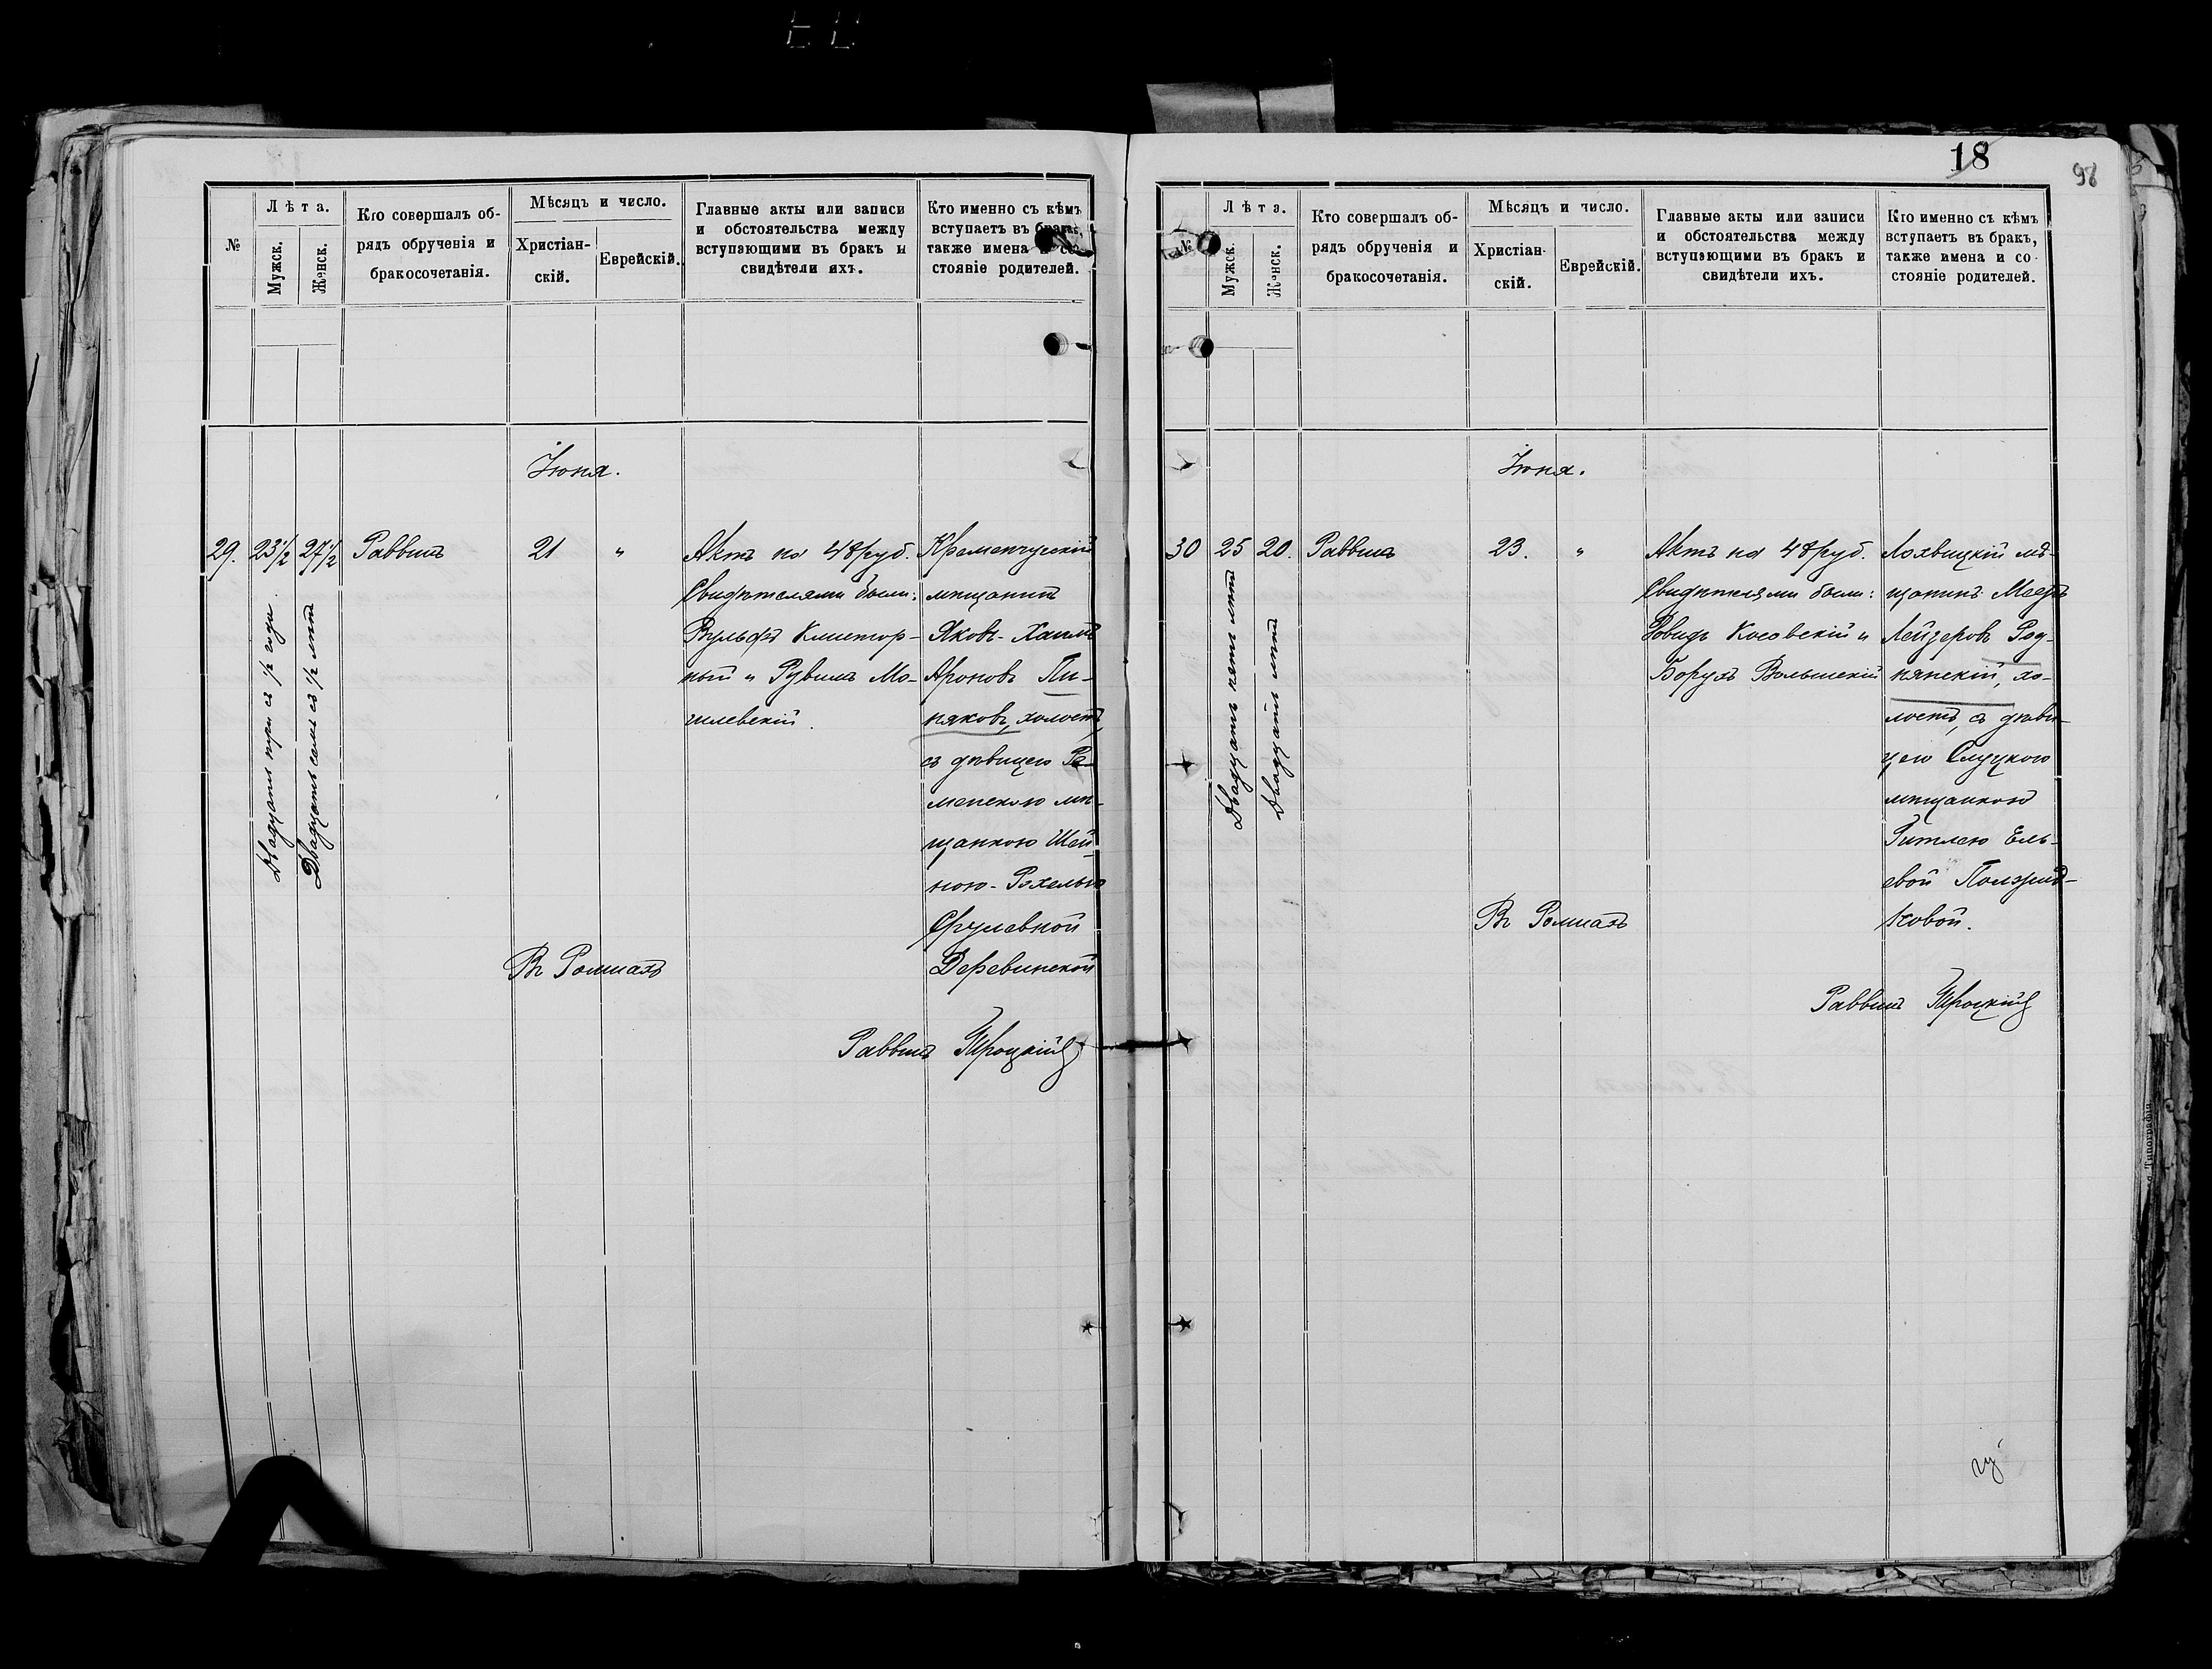 №
Лѣта.
Мужск.
Женск.
Кто совершалъ об-
рядъ обрученія и
бракосочетанія.
Мѣсяцъ и число.
Христіан-
скій.
Еврейскій.
Главные акты или записи
и обстоятельства между
вступающими въ бракъ и
свидѣтели ихъ.
Кто именно съ кѣмъ
вступаетъ въ бракъ,
также имена и со-
стояніе родителей.
Іюня.
29.
23 1/2
27 1/2
Двадцать три съ 1/2 года.
Двадцать семь съ 1/2 лѣтъ
Раввинъ
21
"
Актъ на 48 руб.
Свидѣтелями были:
Вульфъ
ный и Рувинъ Мо-
гилевскій.
Кременчугскій
мѣщанинъ
Яковъ-Хаимъ
Ароновъ Пи-
няковъ, холостъ,
съ дѣвицею Ро-
менскою мѣ-
щанкою Шей-
ною-Рохелью
Сфулевной
Деревинской
Въ Ромнахъ
Раввинъ Троцкій
18
98
№
Лѣта.
Мужск.
Женск.
Кто совершалъ об-
рядъ обрученія и
бракосочетанія.
Мѣсяцъ и число.
Христіан-
скій.
Еврейскій.
Главные акты или записи
и обстоятельства между
вступающими въ бракъ и
свидѣтели ихъ.
Кто именно съ кѣмъ
вступаетъ въ бракъ,
также имена и со-
стояніе родителей.
Іюня.
30
25
20.
Двадцать пять лѣтъ
Двадцать лѣтъ
Раввинъ
23.
"
Актъ на 48 руб.
Свидѣтелями были:
Довидъ Косовскій и
Борухъ Волынскій
Лохвицкій мѣ-
щанинъ Мееръ
Лейзеровъ Род-
нянскій, хо-
лостъ, съ дѣви-
цею Слуцкою
мѣщанкою
Гитлею Ель-
евой
ковой.
Въ Ромнахъ
Раввинъ Троцкій
Типографія